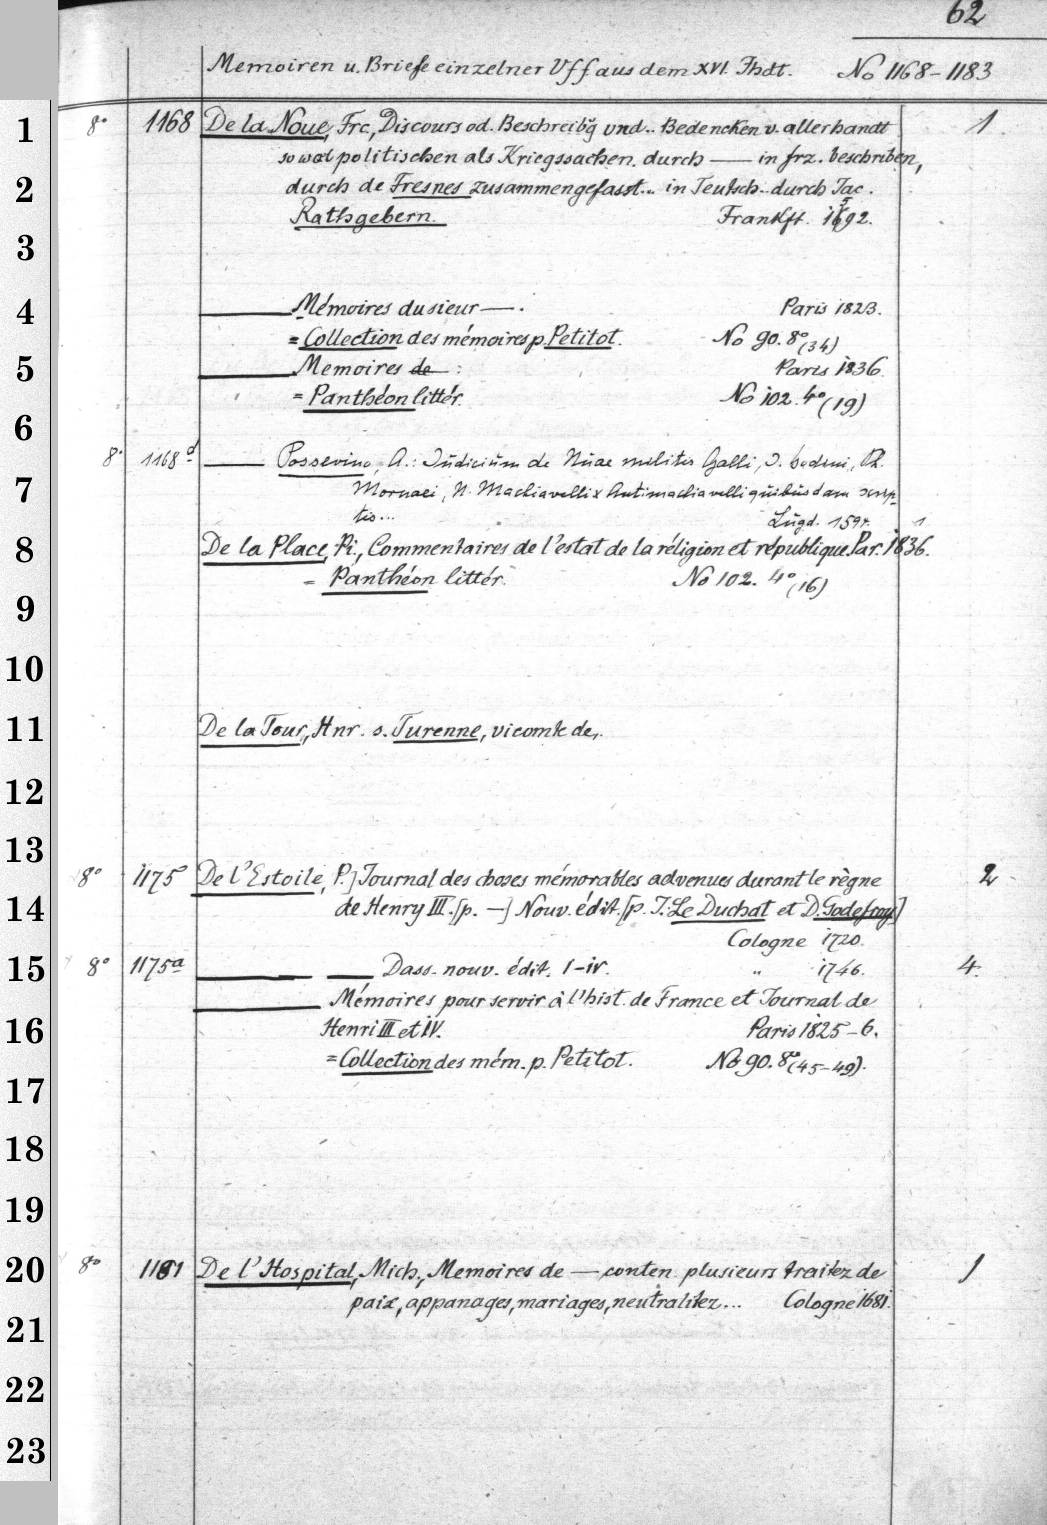 62
Memoiren u. Briefe einzelner Vff aus dem XVI. Jhdt. No 1168-1183
1 8° 1168 De la Noue, Frc, Discours od. Beschreibg vnd.. Bedencken v. allerhandt 1
so wol politischen als Kriegssachen. durch — in frz. beschriben,
2 durch de Fresnes zusammengefasst... in Teutsch.. durch Jac.
Rathgebern. Frankft. 1592.
3
4 — Mémoires du sieur — . Paris 1823.
= Collection des mémoires p. Petitot. No 90. 8° (34)
5 — Memoires de — : Paris 1836.
= Panthéon littér. No 102. 4° (19)
6
8° 1168d — Possevino, A.: Iudicium de Nuae militis Galli, J. bodini, Ph.
7 Mornaei, N. Machiavelli & Antimachiavelli quibusdam scrip
tis... Lugd. 1594. 1
8 De la Place, Pi., Commentaires de l'estat de la réligion et république. Par. 1836.
= Panthéon littér. No 102. 4° (16)
9
10
11 De la Tour, Hnr. s. Turenne, vicomte de,.
12
13
8° 1175 De l'Estoile, P.] Journal des choses mémorables advenues durant le règne 2
14 de Henry III. [p. —] Nouv. édit. [p. J. Le Duchat et D. Godefroy]
Cologne 1720.
15 8° 1175a — — Dass. nouv. édit. I-IV. " 1746. 4.
— Mémoires pour servir à l'hist. de France et Journal de
16 Henri III et IV. Paris 1825-6.
= Collection des mém. p. Petitot. No 90. 8° (45-49).
17
18
19
20 8° 1181 De l'Hospital, Mich., Memoires de — conten. plusieurs traitez de 1
paix, appanages, mariages, neutralitez... Cologne 1681.
21
22
23